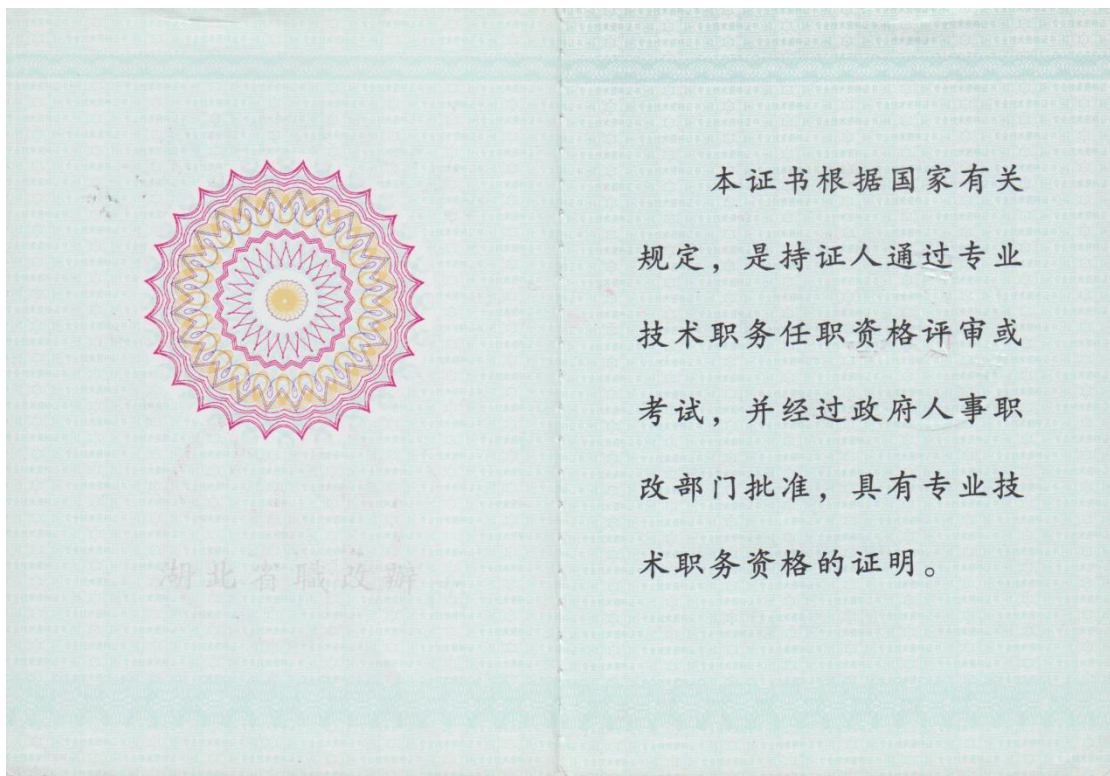 湖北省職改辦
本证书根据国家有关
规定，是持证人通过专业
技术职务任职资格评审或
考试，并经过政府人事职
改部门批准，具有专业技
术职务资格的证明。